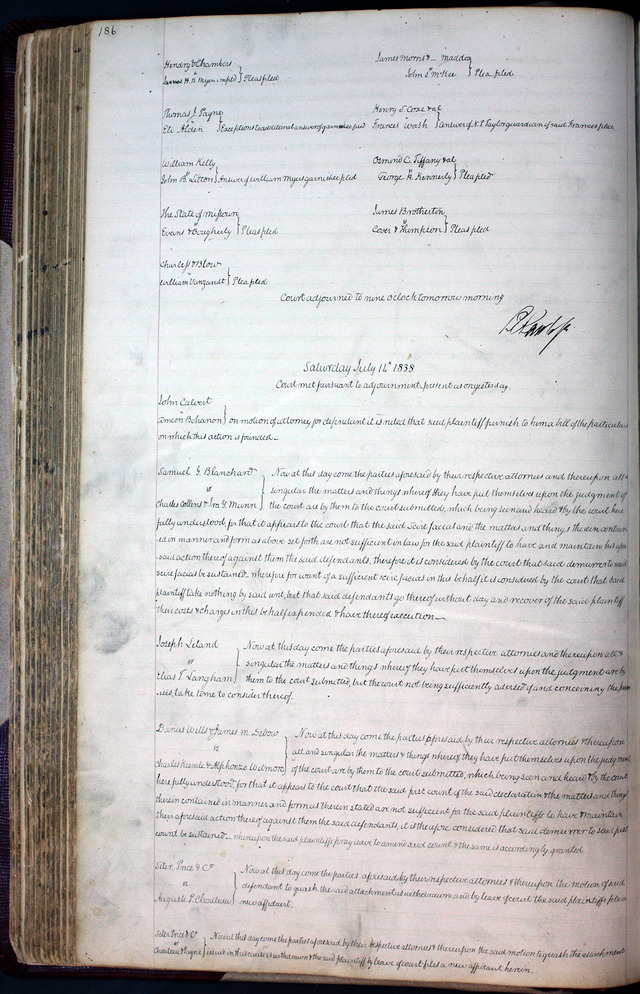 186
Hendry & Chambers
vs
James H. B. Myer impld } Plea filed
James Morris & Maddox
vs
John S. McKee } Plea filed
Thomas J. Payne
vs
Eli Alden } Exceptions to additional answer of garnishee filed
Henry S. Coxe et al
vs
Frances Wash } answer of N. P. Taylor guardian of said Frances filed
William Kelly
vs
John B. Litton } Answer of William Myers garnishee filed
Osmond C. Tiffany et al
vs
George H. Kennerly } Plea filed
The State of Missouri
vs
Evans & Dougherty } Pleas filed
James Brotherton
vs
Cover & Thompson } Pleas filed
Charless & Blow
vs
William Vanzandt } Plea filed
Court adjourned to nine O'clock tomorrow morning
Saturday July 14" 1838
Court met pursuant to adjournment present as on yesterday.
John Calvert
vs
Simeon Bohanon } on motion of attorney for defendant it is ruled that said plaintiff furnish to him a bill of the particulars
on which this action is founded.
Samuel G. Blanchard } Now at this day come the parties aforesaid by their respective attornies and thereupon all &
vs singular the matters and things whereof they have put themselves upon the judgment of
Charles Collins & Ira G. Munn the court are by them to the court submitted, which being seen and heard & by the court here
fully understood, for that it appears to the court that the said Scire facias and the matters and things therein contain
ed in manner and form as above set forth are not sufficient in law for the said plaintiff to have and maintain his afore
said action thereof against them the said defendants, therefore it is considered by the court that said demurrer to said
scire facias be sustained. wherefore for want of a sufficient scire facias in this behalf it is considered by the court that said
plaintiff take nothing by said writ, but that said defendants go thereof without day and recover of the said plaintiff
their costs & charges in this behalf expended & have thereof execution.
Joseph Leland } Now at this day come the parties aforesaid by their respective attornies and thereupon all &
vs singular the matters and things whereof they have put themselves upon the judgment are by
Elias T. Langham them to the court submitted, but the court not being sufficiently advised of and concerning the prem
ises, take time to consider thereof.
Darius Wells & James M. Debow } Now at this day come the parties aforesaid by their respective attornies & thereupon
vs all and singular the matters & things whereof they have put themselves upon the judgment
Charles Keemle & Alphonzo Wetmore of the court are by them to the court submitted, which being seen and heard & by the court
here fully understood, for that it appears to the court that the said first count of the said declaration & the matters and things
therein contained in manner and form as therein stated are not sufficient for the said plaintiffs to have & maintain
their aforesaid action thereof against them the said defendants, it is therefore considered that said demurrer to said first
count be sustained. whereupon the said plaintiffs pray leave to amend said count & the same is accordingly granted
Siter, Price & Co } Now at this day come the parties aforesaid by their respective attornies & thereupon the motion of said
vs defendant to quash the said attachment is withdrawn and by leave of court the said plaintiffs file a
Auguste P. Chouteau new affidavit.
Siter Price & Co } Now at this day come the parties aforesaid by their respective attornies & thereupon the said motion to quash the attachment
vs
Chouteau & Payne issued in this cause is withdrawn & the said plaintiff by leave of court files a new affidavit herein.